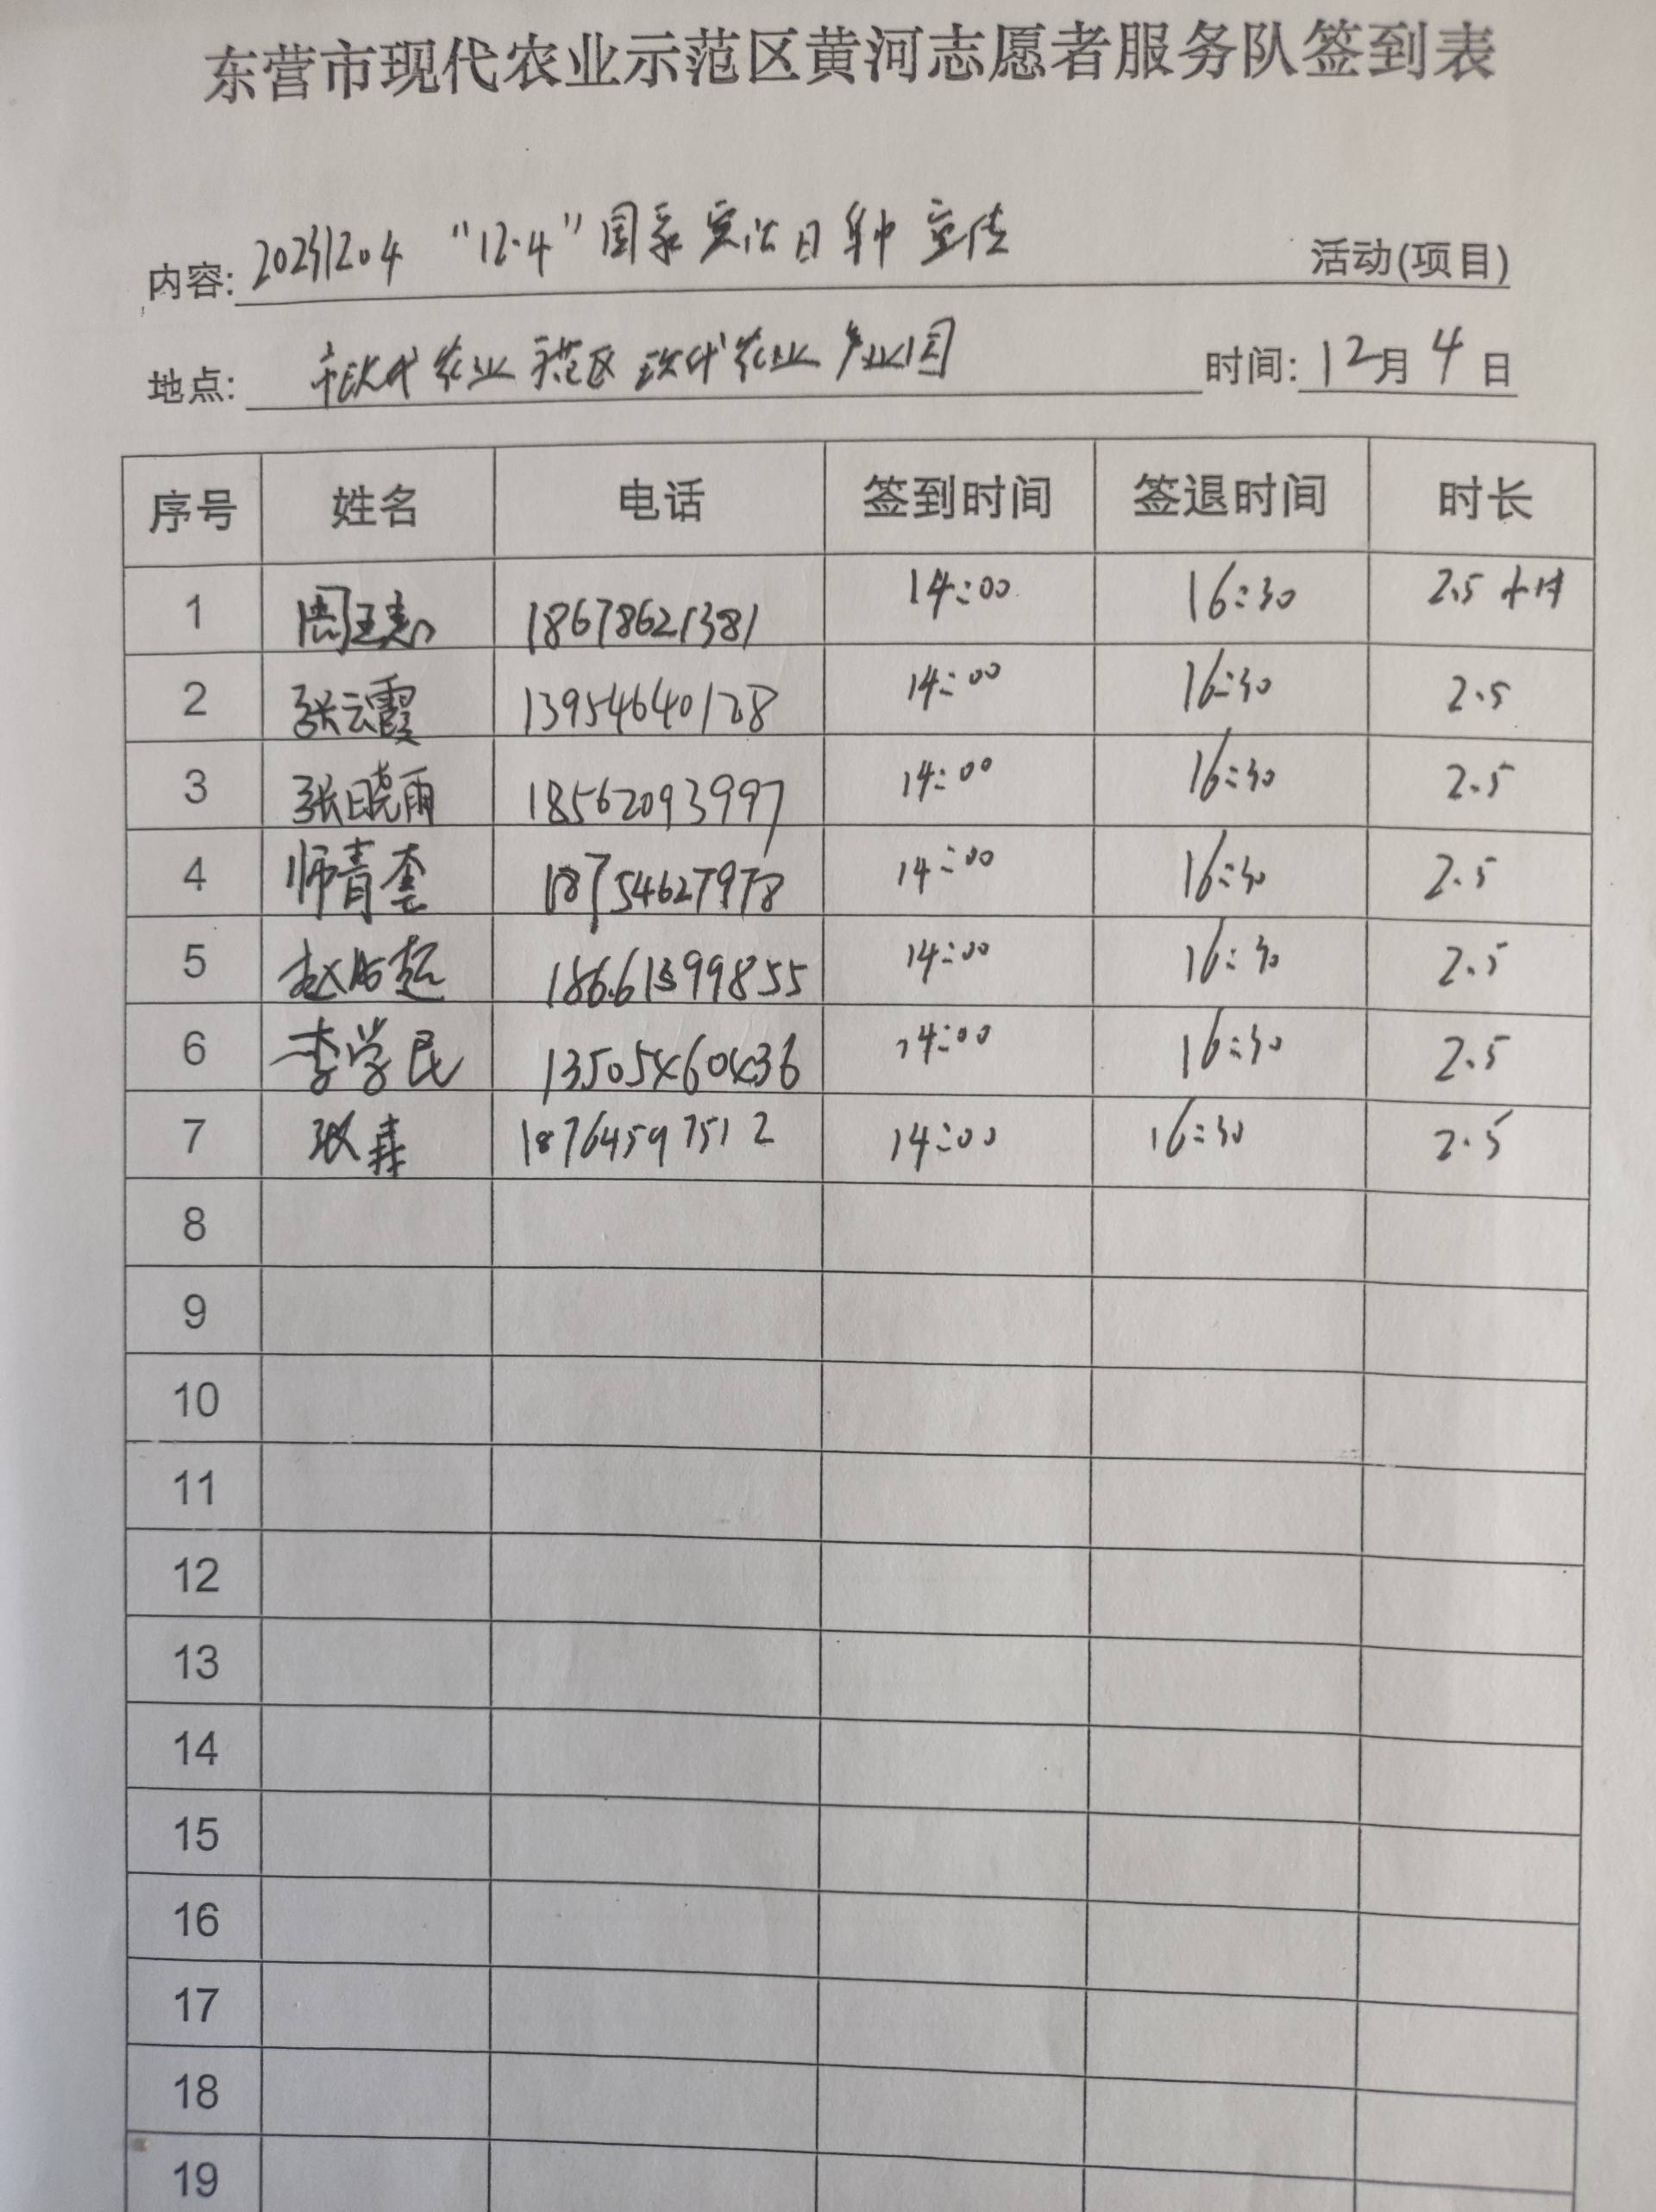 东营市现代农业示范区黄河志愿者服务队签到表
内容: 20231204 “12·4”国家宪法日集中宣传 活动(项目)
地点: 市现代农业示范区现代农业产业园 时间: 12月4日
序号 姓名 电话 签到时间 签退时间 时长
1 18678621381 14:00 16:30 2.5小时
2 张云霞 13954640128 14:00 16:30 2.5
3 张晓雨 18562093997 14:00 16:30 2.5
4 师青 18754627978 14:00 16:30 2.5
5 赵 超 18661399855 14:00 16:30 2.5
6 李学民 13505460436 14:00 16:30 2.5
7 张森 18764597512 14:00 16:30 2.5
8
9
10
11
12
13
14
15
16
17
18
19